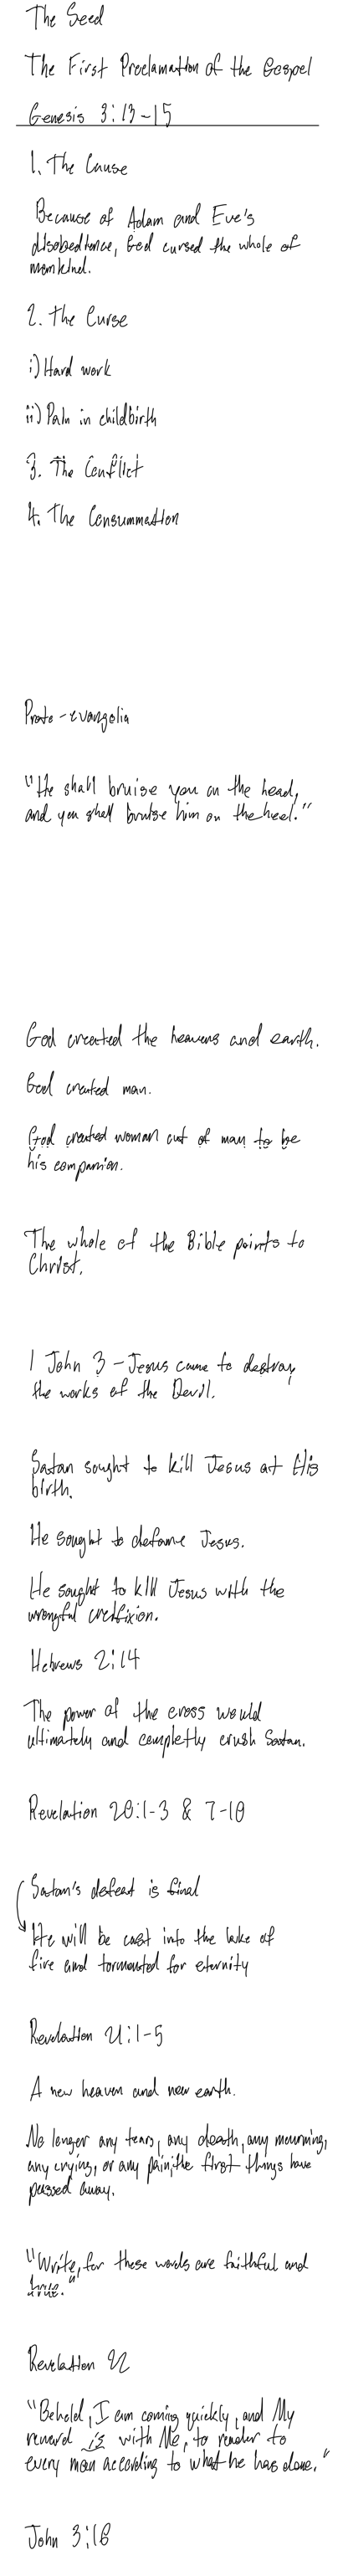 The Seed
The First Proclamation of the Gospel
Genesis 3:13-15
1. The Cause
Because of Adam and Eve's
disobedience, God cursed the whole of
mankind.
2. The Curse
i) Hard work
ii) Pain in childbirth
3. The Conflict
4. The Consummation
Proto-evangelia
"He shall bruise you on the head,
and you shall bruise him on the heel."
God created the heavens and earth.
God created man.
God created woman out of man to be
his companion.
The whole of the Bible points to
Christ.
1 John 3 - Jesus came to destroy
the works of the Devil.
Satan sought to kill Jesus at His
birth.
He sought to defame Jesus.
He sought to kill Jesus with the
wrongful crucifixion.
Hebrews 2:14
The power of the cross would
ultimately and completly crush Satan.
Revelation 20:1-3 & 7-10
Satan's defeat is final
He will be cast into the lake of
fire and tormented for eternity
Revelation 21:1-5
A new heaven and new earth.
No longer any tears, any death, any mourning,
any crying, or any pain; the first things have
passed away.
"Write, for these words are faithful and
true."
Revelation 22
"Behold, I am coming quickly, and My
reward is with Me, to render to
every man according to what he has done."
John 3:16